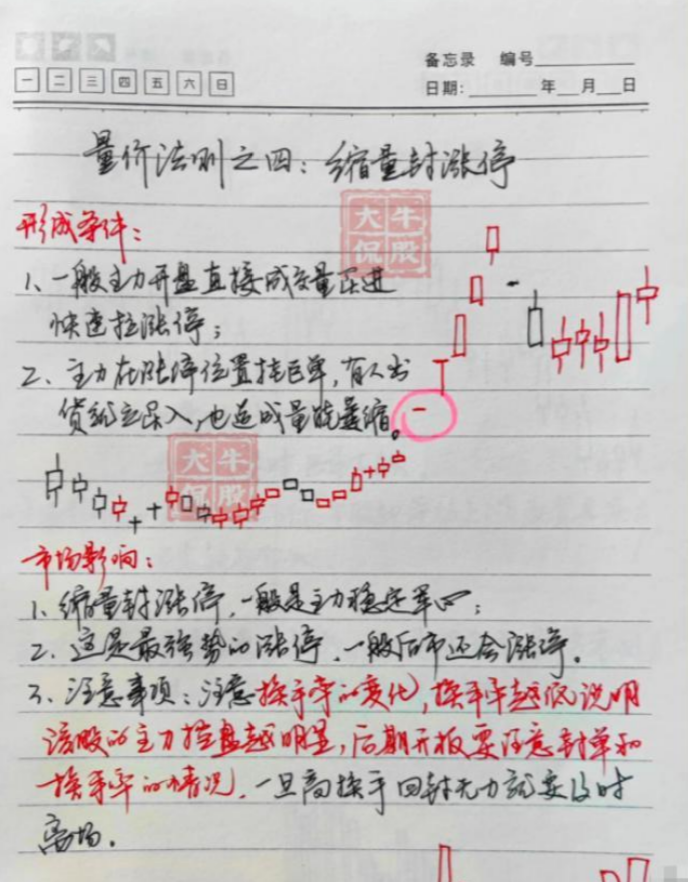 备忘录 编号
一 二 三 四 五 六 日
日期: 年 月 日
量价法则之四：缩量封涨停
大牛
侃股
形成条件：
1、一般主力开盘直接成交量跟进
快速拉涨停；
2、主力在涨停位置挂巨单，有人出
货就立买入，也造成量能萎缩。
大牛
侃股
市场影响：
1、缩量封涨停，一般是主力稳定军心；
2、这是最强势的涨停，一般后市还会涨停。
3、注意事项：注意换手率的变化，换手率越低说明
该股的主力控盘越明显，后期开板要注意封单和
换手率的情况，一旦高换手回封无力就要及时
离场。